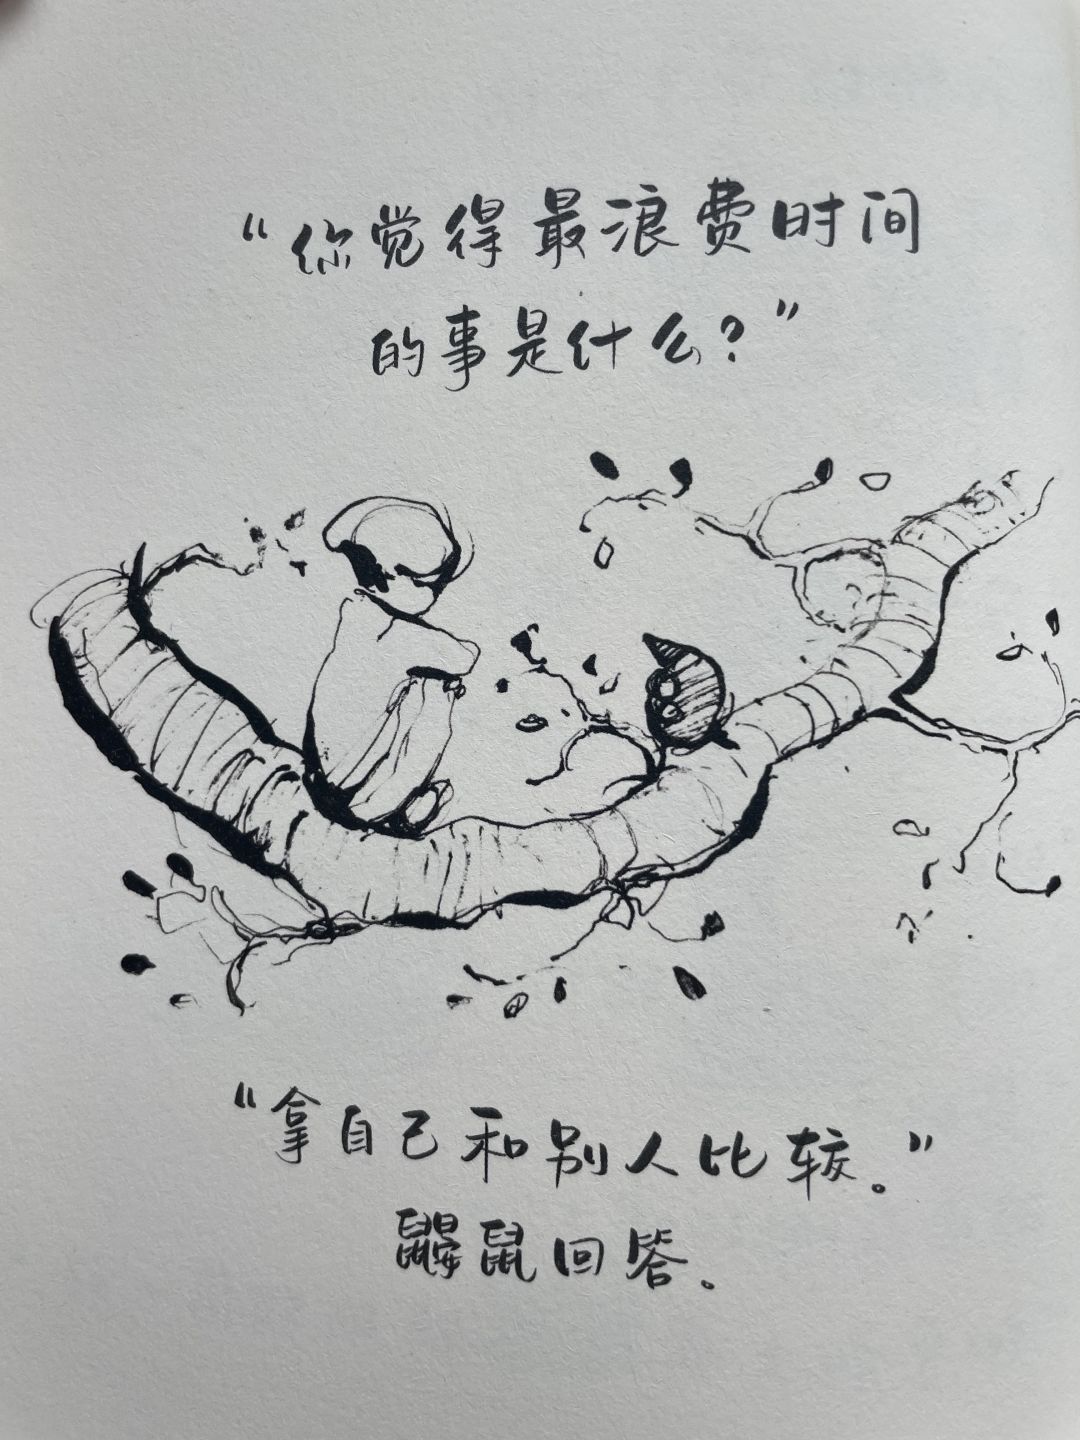 “你觉得最浪费时间
的事是什么?”
“拿自己和别人比较。”
鼹鼠回答。